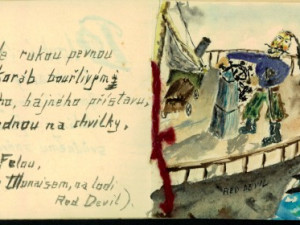 rukou pevnou
koráb bouřlivými
ho, bájného přístavu,
ednou na chvilky,
Felou,
Munaisem, na lodi
Red Devil).
RED DEVIL